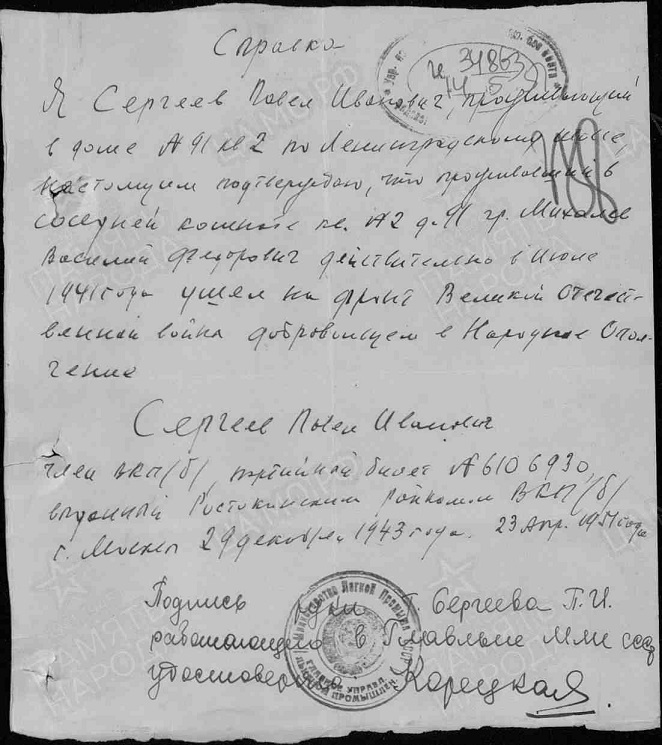 Справка
31863
Я Сергеев Павел Иванович, проживающий
в доме № 91 кв 2 по Ленинградскому шоссе,
настоящим подтверждаю, что проживавший в
соседней комнате кв. №2 д. 91 гр. Михалев
Василий Федорович действительно в июле
1941 года ушел на фронт Великой Отечест-
венной война добровольцем в Народное Опол-
чение
Сергеев Павел Иванович
член ВКП/б/, партийный билет №6106930,
выданный Ростокинским Райкомом ВКП/б/
г. Москвы 29 декабря 1943 года. 23 Апр. 1951 года
Подпись Сергеева П.И.
работающего в Главльне МЛП СССР
удостоверяю Карецкая
Министерство Легкой Промышл
ГЛАВНОЕ УПРАВЛ
ЛЬНОЙ ПРОМЫШЛЕН
ПАМЯТЬ НАРОДА
ЦАМО РФ